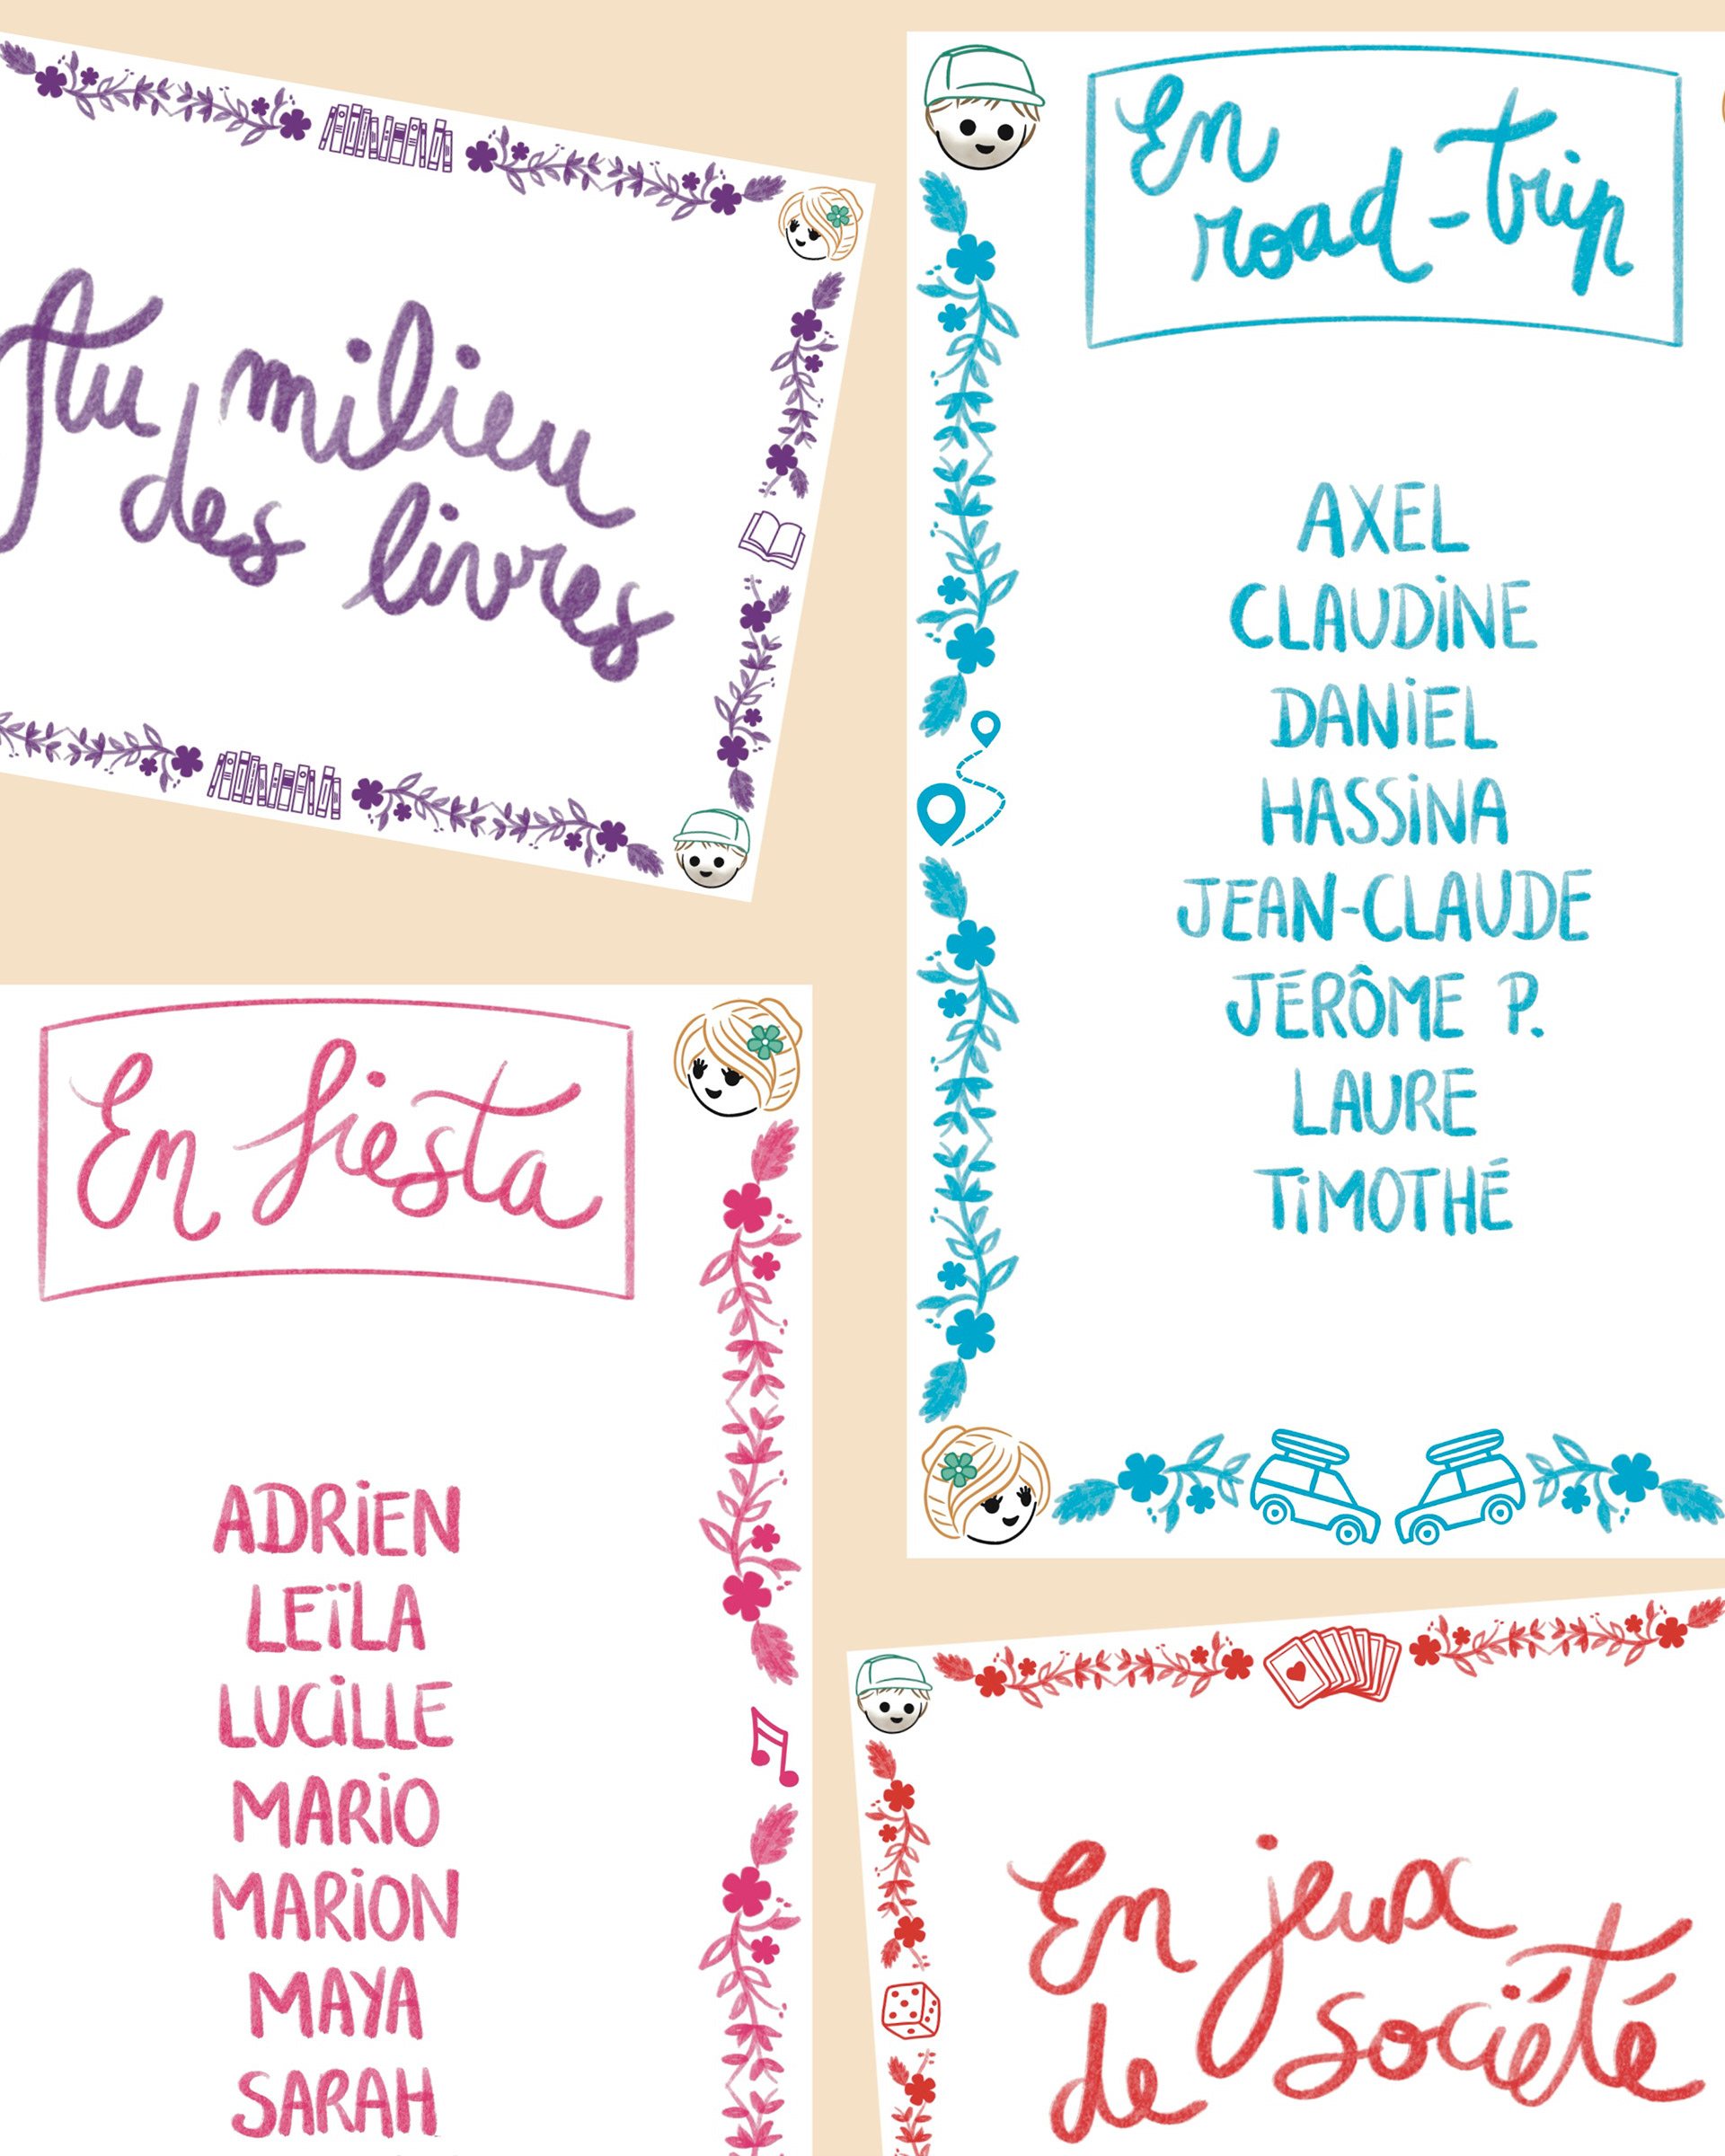 Au milieu
des livres
En
road-trip
AXEL
CLAUDINE
DANIEL
HASSINA
JEAN-CLAUDE
JÉRÔME P.
LAURE
TIMOTHÉ
En fiesta
ADRIEN
LEÏLA
LUCILLE
MARIO
MARION
MAYA
SARAH
En jeux
de société